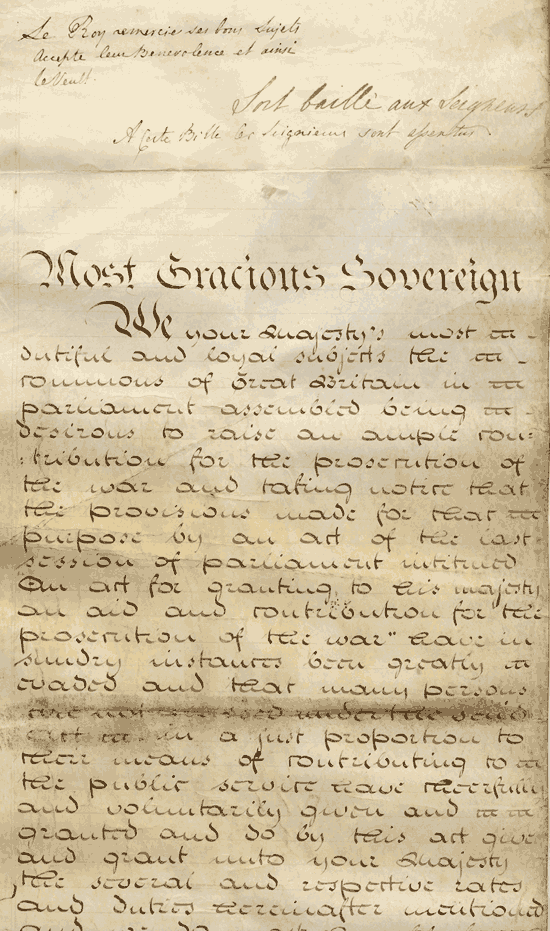 Le Roy remercie ses bons Sujets
Accepte leur Benevolence et ainsi
le Veult.
Soit baillé aux Seigneurs
A Ceste Bille les Seigneurs sont assentus
Most Gracious Sovereign
We your Majesty's most
dutiful and loyal subjects the
commons of Great Britain in
parliament assembled being
desirous to raise an ample con:
:tribution for the prosecution of
the war and taking notice that
the provisions made for that
purpose by an act of the last
session of parliament intituled
An act for granting to his majesty
an aid and contribution for the
prosecution of the war" have in
sundry instances been greatly
evaded and that many persons
are not assessed under the said
act in a just proportion to
their means of contributing to
the public service have cheerfully
and voluntarily given and
granted and do by this act give
and grant unto your Majesty
the several and respective rates
and duties hereinafter mentioned